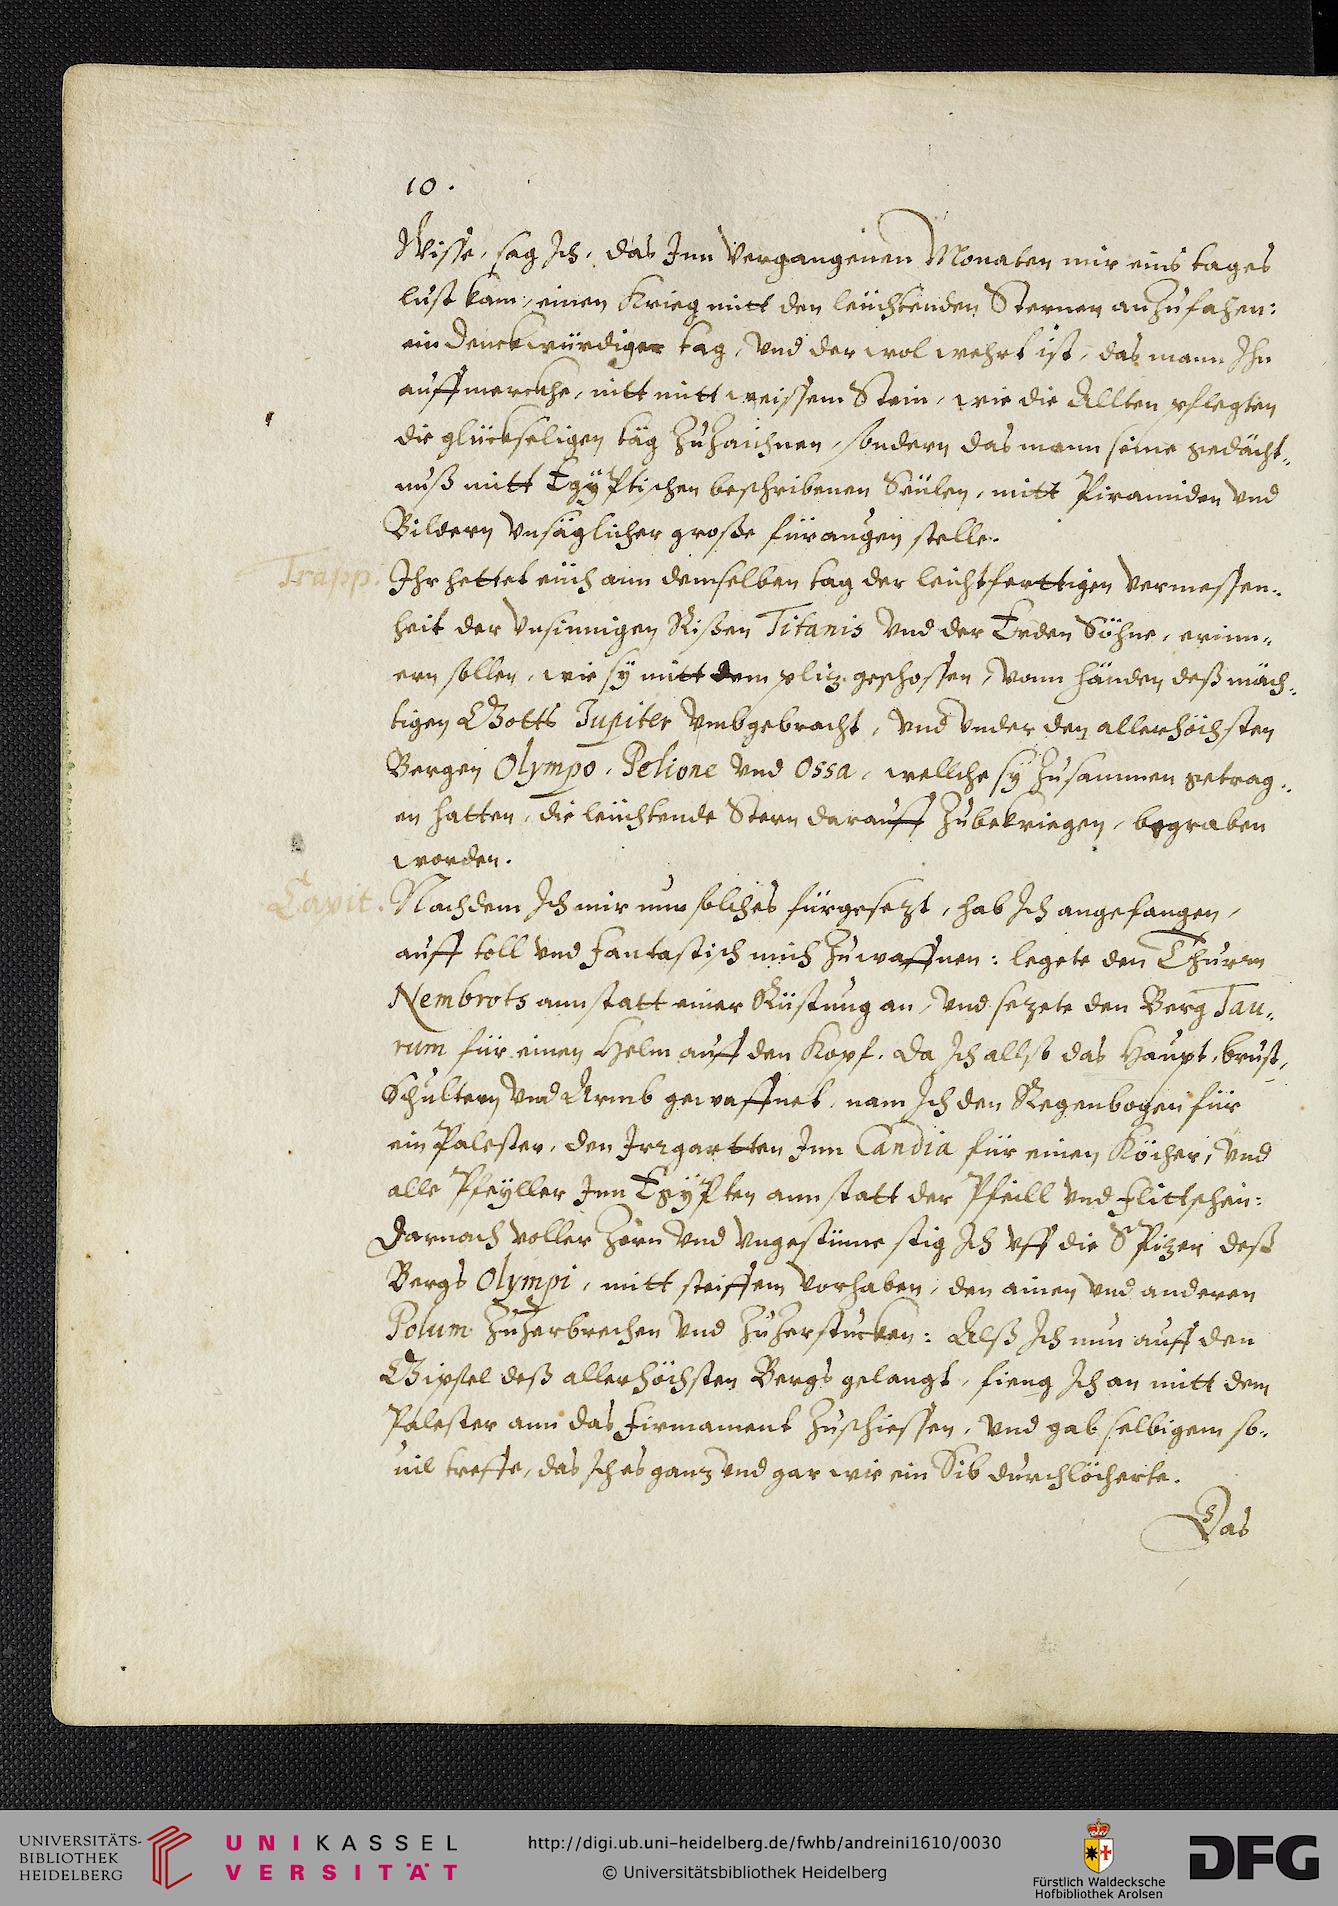 10.
Wisse, sag Ich, das Inn vergangenen Monaten mir eins tages
lust kam, einen Krieg mitt den leüchtenden Sternen anzufahen:
ein denckwürdiger tag, vnd der wol wehrt ist, das mann Ihn
auffmerckhe, nitt mitt weissem Stein, wie die Allten pflegten
die glückseligen täg zuzaichnen, sondern das mann seine gedächt-
nuß mitt Egÿptischen beschribenen Seülen, mitt Piramiden vnd
Bildern vnsäglicher große für augen stelle.
Trapp. Ihr hettet eüch ann demselben tag der leichtferttigen vermessen-
heit der vnsinnigen Rißen Titanis vnd der Erden Söhne, erinn-
ern sollen, wie sy mitt dem plitz geschossen, vonn händen deß mäch-
tigen Gotts Jupiter vmbgebracht, vnd vnder den allerhöchsten
Bergen Olympo, Pelione vnd Ossa, wellche sy zusammen getrag-
en hatten, die leüchtende Stern darauff zubekriegen, begraben
worden.
Capit. Nachdem Ich mir nun solches fürgesezt, hab Ich angefangen,
auff toll vnd fantastisch mich zuwaffnen: legete den Thurm
Nembrots ann statt einer Rüstung an, vnd sezete den Berg Tau-
rum für einen Helm auff den Kopf. Da Ich allso das Haupt, brust,
Schultern vnd Armb gewaffnet, nam Ich den Regenbogen für
ein Palester, den Irrgartten Inn Candia für einen Köcher, vnd
alle Pfeÿller Inn Egÿpten ann statt der Pfeill vnd flittschen:
Darnach voller zorn vnd vngestüme stig Ich vff die Spizen deß
Bergs Olympi, mitt steiffem vorhaben, den ainen vnd anderen
Polum zuzerbrechen vnd zuzerstucken: Alß Ich nun auff den
Gipfel deß allerhöchsten Bergs gelangt, fieng Ich an mitt dem
Palester ann das firmament zuschiessen, vnd gab selbigem so-
uil treffe, das Ich es ganz vnd gar wie ein Sib durchlöcherte.
Das
UNIVERSITÄTS-
BIBLIOTHEK
HEIDELBERG
UNIKASSEL
VERSITÄT
http://digi.ub.uni-heidelberg.de/fwhb/andreini1610/0030
© Universitätsbibliothek Heidelberg
Fürstlich Waldecksche
Hofbibliothek Arolsen
DFG